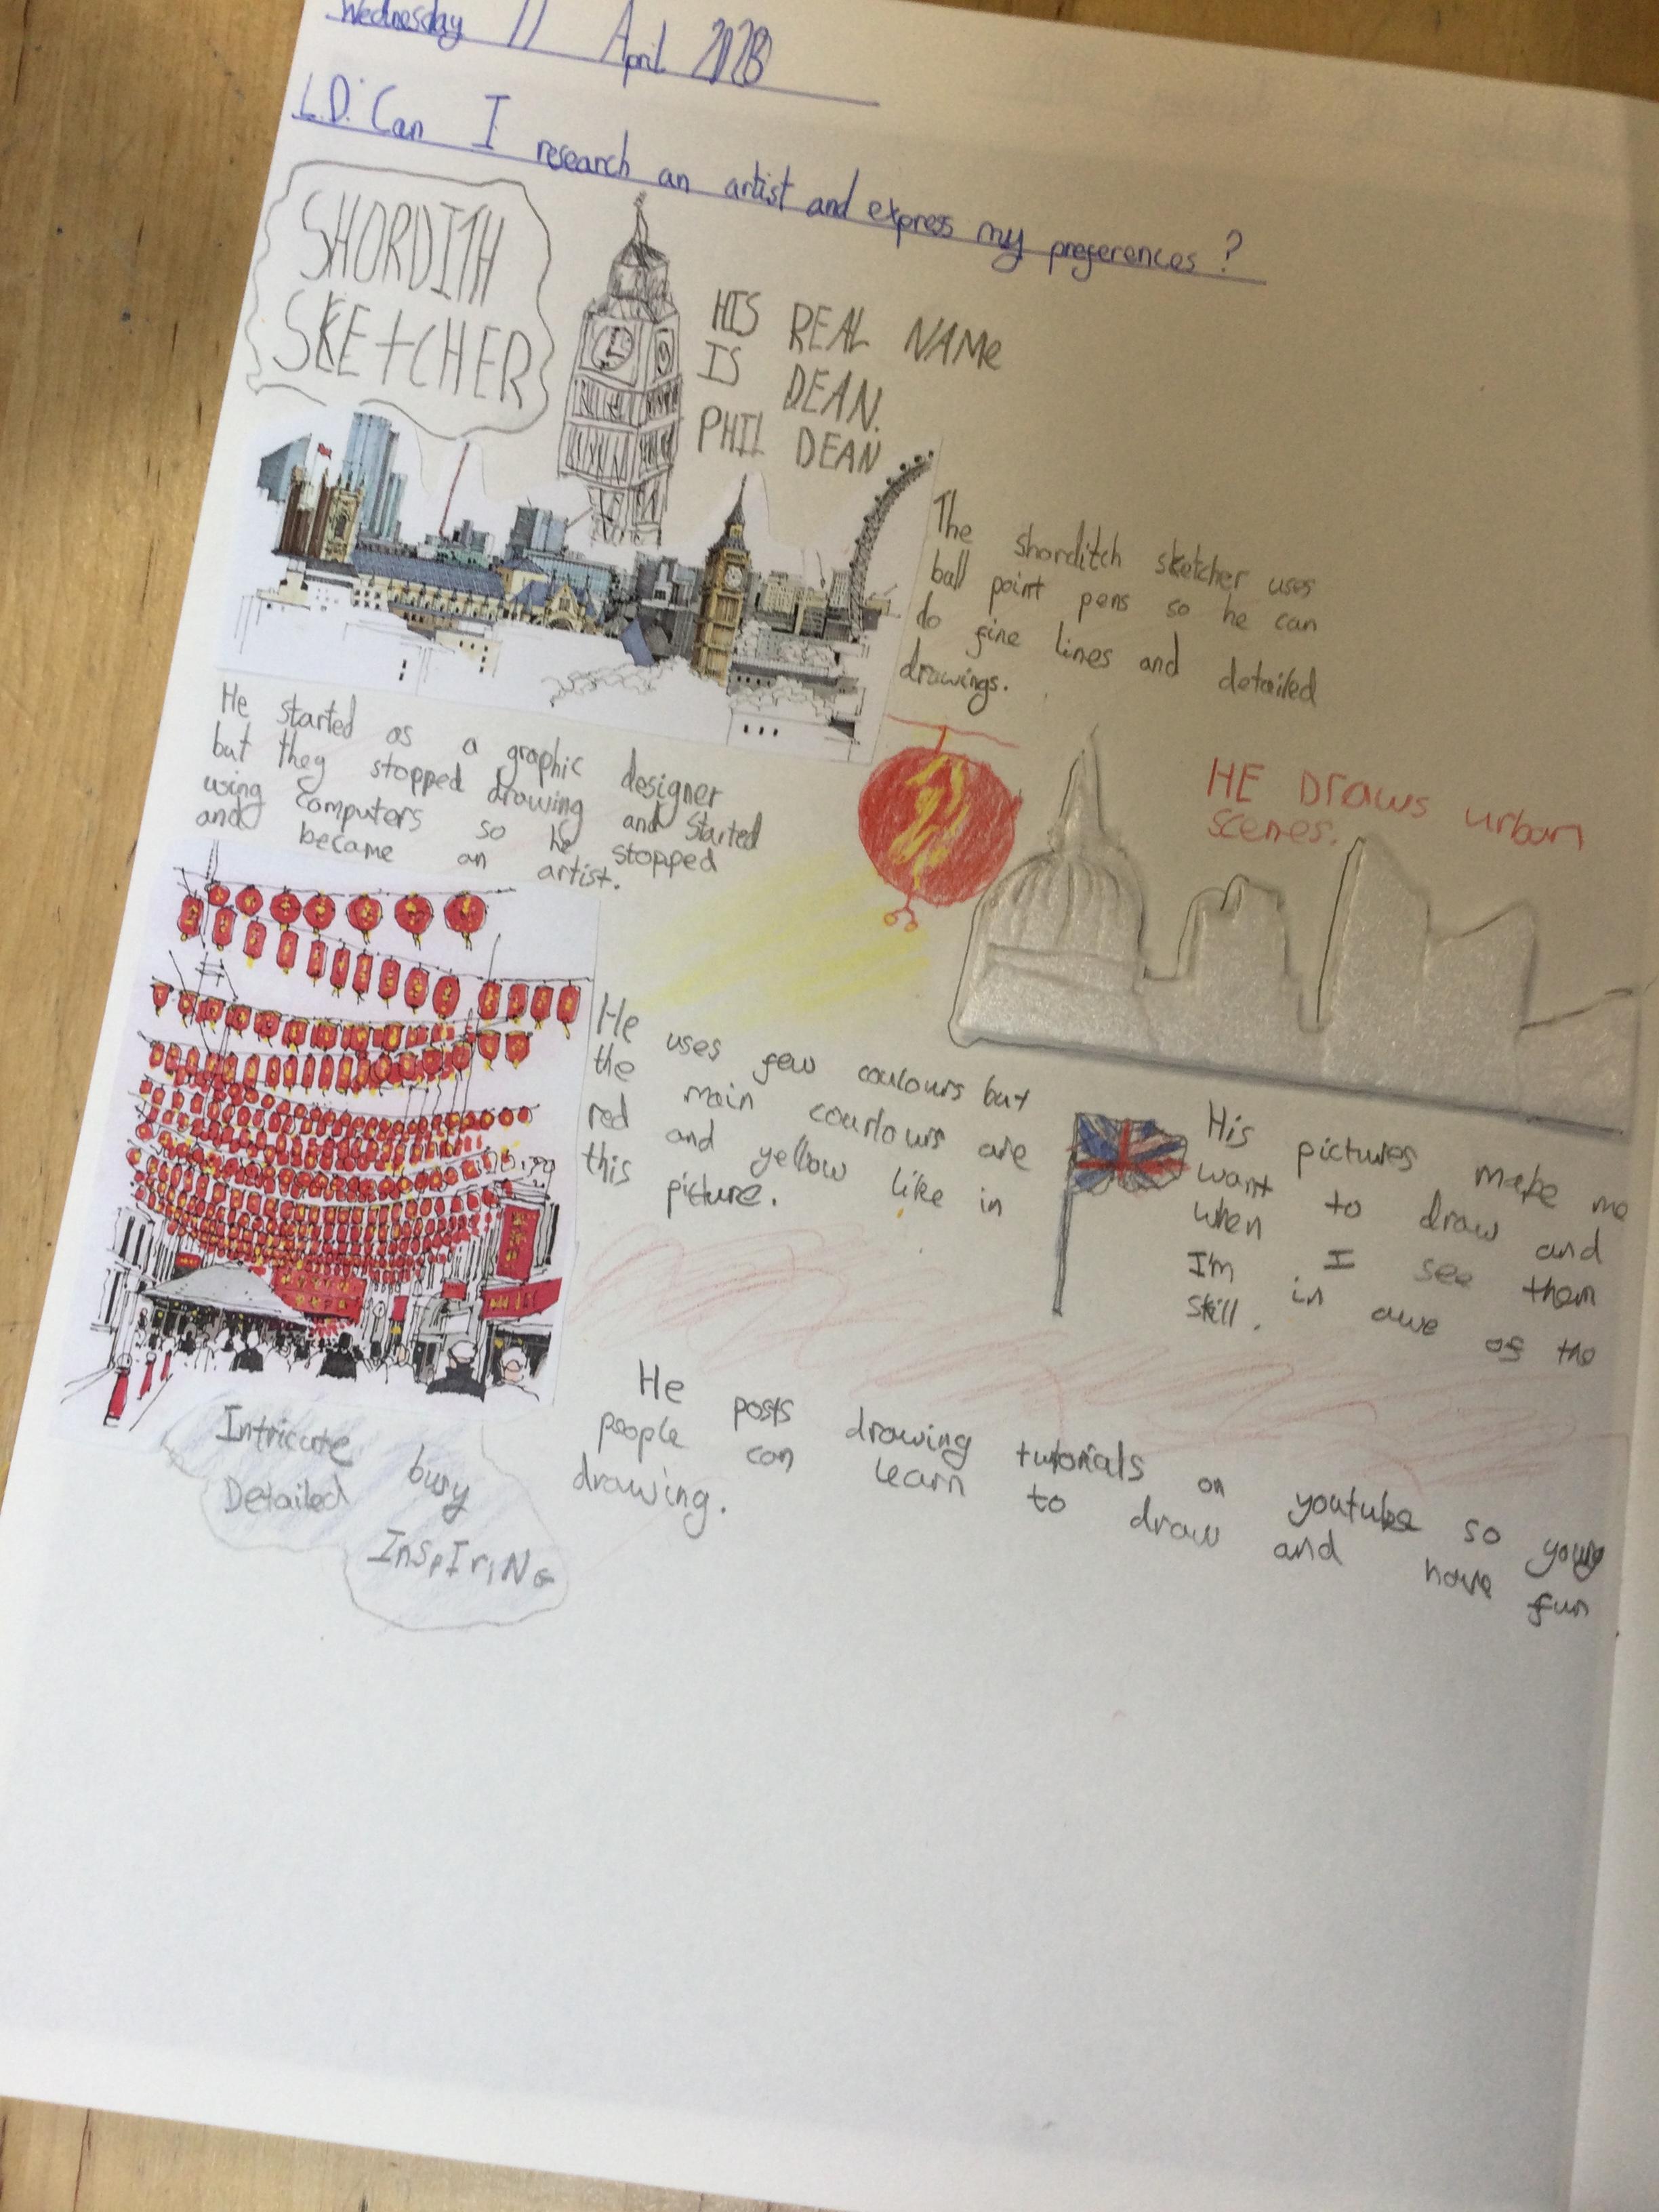 Wednesday 11 April
L.O: Can I research an artist and express my preferences?
SHORDITH
SKEtCHER
HIS REAL NAMe
IS DEAN.
PHIL DEAN
The shorditch sketcher uses
ball point pens so he can
do fine lines and detailed
drawings.
He started as a graphic designer
but they stopped drawing and started
using computers so he stopped
and became an artist.
HE Draws urban
scenes.
He uses few coulours but
the main courlours are
red and yellow like in
this picture.
His pictures make me
want to draw and
when I see them
I'm in awe of the
skill.
He posts drawing tutorials on youtube so young
people can learn to draw and have fun
drawing.
Intricate busy
Detailed
InSpIrINg